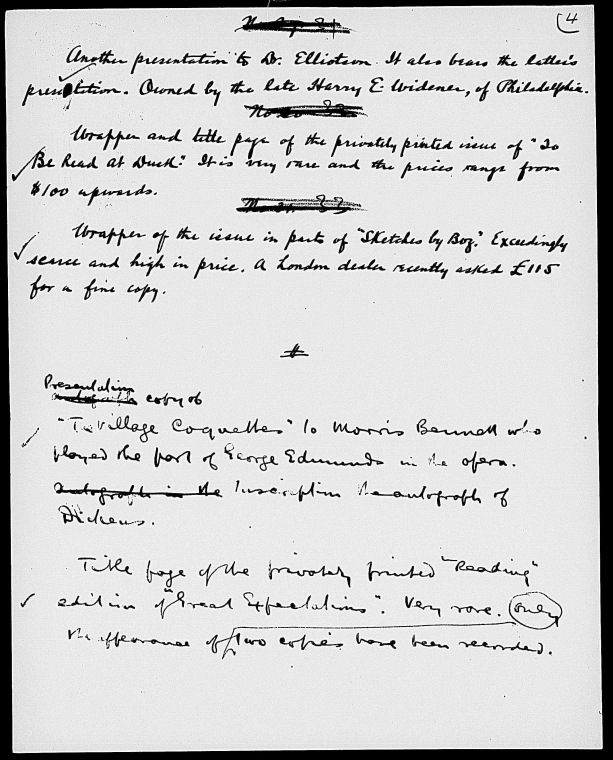 4
Another presentation to Dr. Elliotson. It also bears the latter's
presentation. Owned by the late Harry E. Widener, of Philadelphia.
Wrapper and title page of the privately printed issue of "To
Be Read at Dusk." It is very rare and the prices range from
$100 upwards.
Wrapper of the issue in parts of "Sketches by Boz." Exceedingly
scarce and high in price. A London dealer recently asked £115
for a fine copy.
#
Presentation
copy of
"The Village Coquettes" to Morris Bennett who
played the part of George Edmunds in the opera.
autograph in the Inscription the autograph of
Dickens.
Title page of the privately printed "Reading"
edition of "Great Expectations". Very rare. only
the appearance of two copies have been recorded.